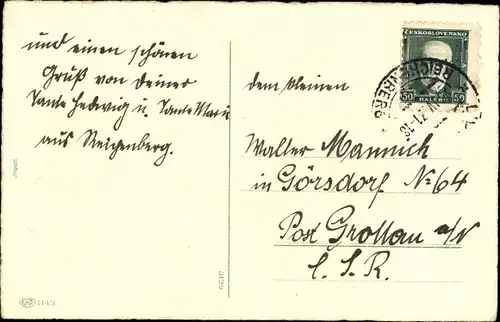 und einen schönen
Gruß von Deiner
Tante Hedwig u. Tante Mari
aus Reigenberg.
dem kleinen
Walter Mannich
in Görsdorf No 64
Post Grottau a/N
Č. S. R.
ČESKOSLOVENSKO
50 HALÉŘŮ 50
REICHENBERG
Import.
1143